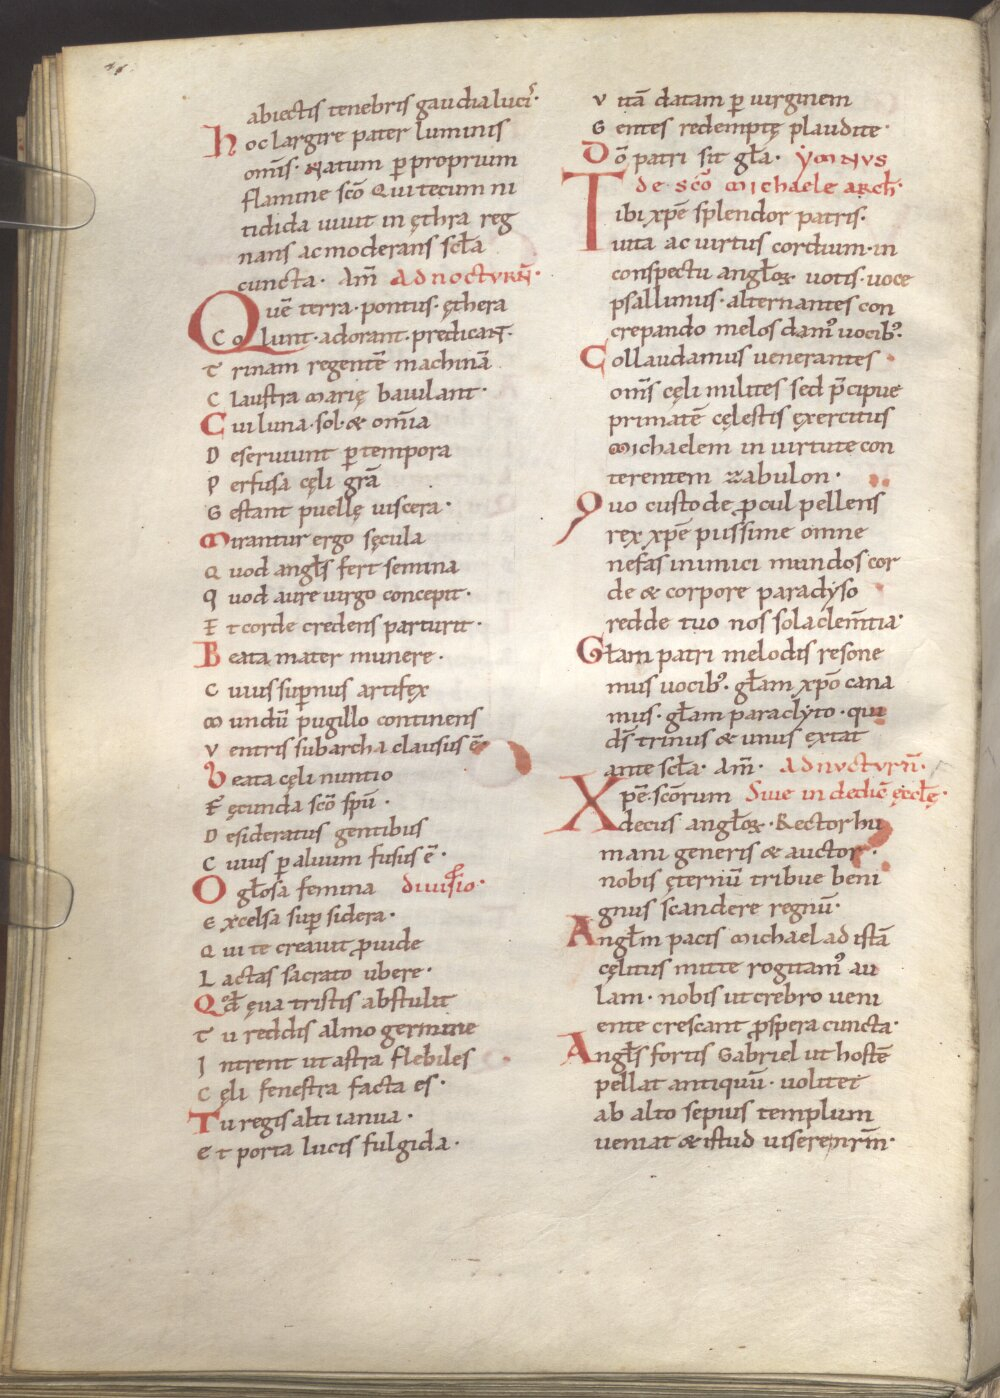 abiectis tenebris gaudia luciˢ·
hoc largire pater luminis
om̅s· Natum ꝑ proprium
flamine sc̅o Qui tecum ni
tidida uiuit in ęthra reg
nans ac moderans sc̅la
cuncta· Am̅ Ad nocturn̅·
Que̅ terra· pontus· ęthera
Colunt· adorant· predicant·
Trinam regente̅ machina̅
Claustra marię baiulant·
Cui luna· sol· & om̅ia
Deseruiunt ꝑ tempora
Perfusa cęli gr̅a
Gestant puellę uiscera·
Mirantur ergo sęcula
Quod angl̅s fert semina
Quod aure uirgo concepit·
Et corde credens parturit·
Beata mater munere·
Cuius suꝑnus artifex
Mundu̅ pugillo continens
Ventris sub archa clausus e̅
Beata cęli nuntio
Fęcunda sc̅o sp̅u·
Desideratus gentibus
Cuius ꝑ aluum fusus e̅·
O gl̅osa femina diuisio·
Excelsa suꝑ sidera·
Qui te creauit ꝓuide
Lactas sacrato ubere·
Qd̅ ęua tristis abstulit
Tu reddis almo germine
Intrent ut astra flebiles
Cęli fenestra facta es·
Tu regis alti ianua·
Et porta lucis fulgida·
Vita̅ datam ꝑ uirginem
Gentes redemptę plaudite·
Do̅ patri sit gl̅a· ẏmnus
de sc̅o michaele arch̅·
Tibi xp̅e splendor patris·
uita ac uirtus cordium· in
conspectu angl̅oꝝ uotis· uoce
psallimus· alternantes con
crepando melos dam᾽ uocib᾽·
Collaudamus uenerantes
om̅s cęli milites sed p̅cipue
primate̅ cęlestis exercitus
Michaelem in uirtute con
terentem zabulon·
Quo custode ꝓcul pellens
rex xp̅e piissime omne
nefas inimici mundos cor
de & corpore paradẏso
redde tuo nos sola clem̅tia·
Gl̅am patri melodis resone
mus uocib᾽· gl̅am xp̅o cana
mus· gl̅am paraclẏto· qui
d̅s trinus & unus extat
ante sc̅la· Am̅· Ad nucturn̅·
Xp̅e· sc̅orum Siue in dedic̅ ęccl̅ę·
decus angl̅oꝝ· Rector hu
mani generis & auctor·
nobis ęternu̅ tribue beni
gnus scandere regnu̅·
Angl̅m pacis Michael ad ista̅
cęlitus mitte rogitam᾽ au
lam· nobis ut crebro ueni
ente crescant ꝓspera cuncta·
Angl̅s fortis Gabriel ut hoste̅
pellat antiquu̅· uolitet
ab alto sepius templum
ueniat & istud uisere nr̅m·